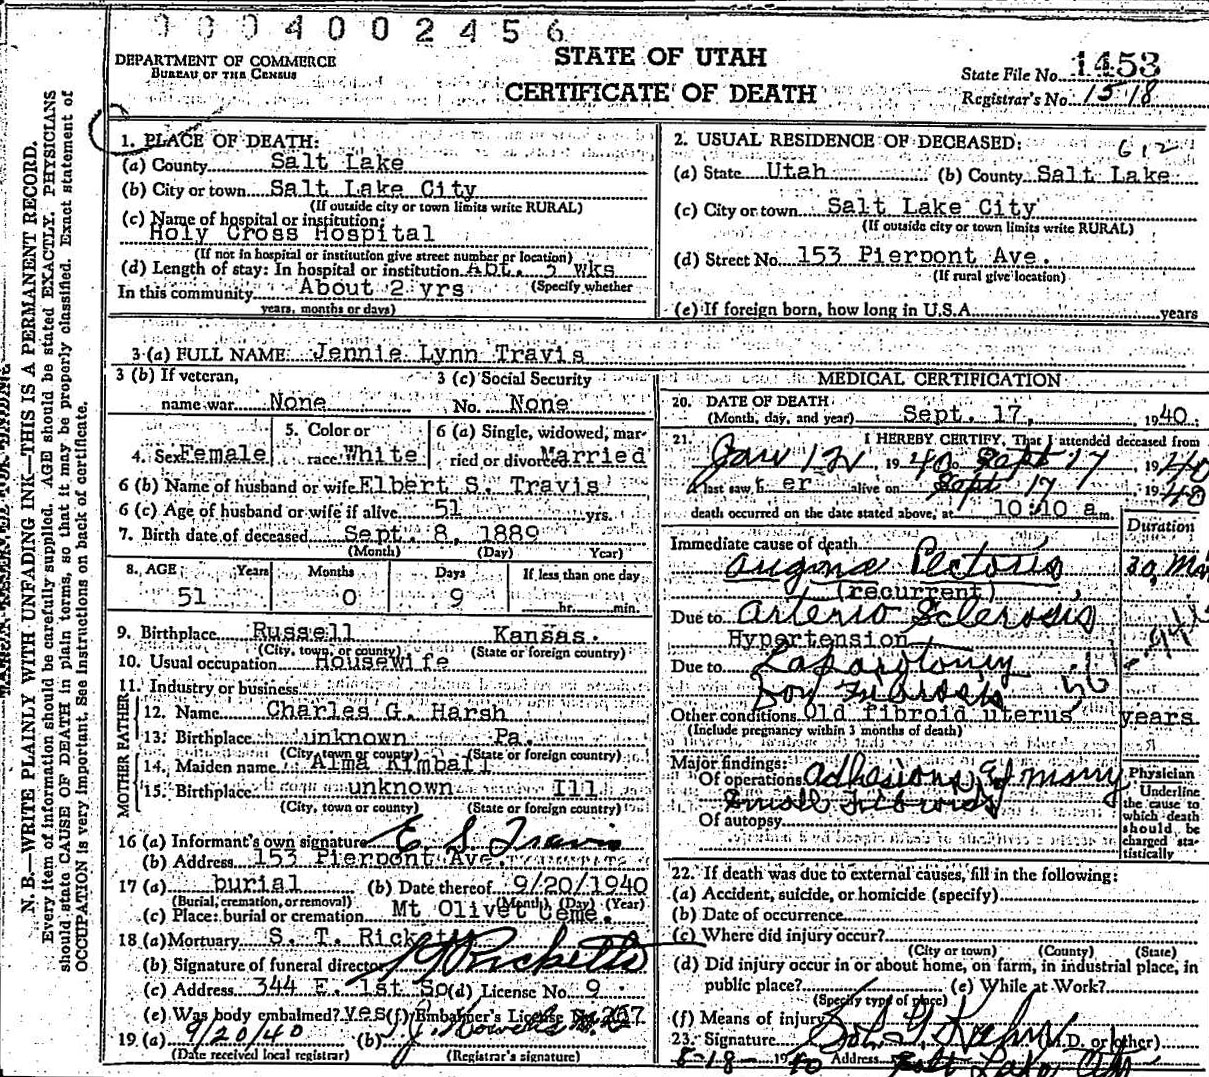 0004002456
DEPARTMENT OF COMMERCE
BUREAU OF THE CENSUS
STATE OF UTAH
CERTIFICATE OF DEATH
State File No. 1453
Registrar's No. 1518
N. B.—WRITE PLAINLY WITH UNFADING INK—THIS IS A PERMANENT RECORD.
Every item of information should be carefully supplied. AGE should be stated EXACTLY. PHYSICIANS
should state CAUSE OF DEATH in plain terms, so that it may be properly classified. Exact statement of
OCCUPATION is very important. See instructions on back of certificate.
1. PLACE OF DEATH:
(a) County Salt Lake
(b) City or town Salt Lake City
(If outside city or town limits write RURAL)
(c) Name of hospital or institution:
Holy Cross Hospital
(If not in hospital or institution give street number or location)
(d) Length of stay: In hospital or institution Abt. 3 wks
(Specify whether
In this community About 2 yrs
years, months or days)
2. USUAL RESIDENCE OF DECEASED:
612
(a) State Utah (b) County Salt Lake
(c) City or town Salt Lake City
(If outside city or town limits write RURAL)
(d) Street No. 153 Pierpont Ave.
(If rural give location)
(e) If foreign born, how long in U.S.A. years
3 (a) FULL NAME Jennie Lynn Travis
3 (b) If veteran,
name war None
3 (c) Social Security
No. None
4. Sex Female
5. Color or
race White
6 (a) Single, widowed, mar-
ried or divorced Married
6 (b) Name of husband or wife Elbert S. Travis
6 (c) Age of husband or wife if alive 51 yrs.
7. Birth date of deceased Sept. 8, 1889
(Month) (Day) Year)
8. AGE Years Months Days If less than one day
51 0 9 hr. min.
9. Birthplace Russell Kansas.
(City, town, or county) (State or foreign country)
10. Usual occupation Housewife
11. Industry or business
FATHER
12. Name Charles G. Harsh
13. Birthplace unknown Pa.
(City, town or county) (State or foreign country)
MOTHER
14. Maiden name Alma Kimball
15. Birthplace unknown Ill
(City, town or county) (State or foreign country)
16 (a) Informant's own signature E. S. Travis
(b) Address 153 Pierpont Ave.
17 (a) burial (b) Date thereof 9/20/1940
(Burial, cremation, or removal) (Month) (Day) (Year)
(c) Place: burial or cremation Mt Olivet Ceme.
18 (a) Mortuary S. T. Ricketts
(b) Signature of funeral director Ricketts
(c) Address 344 E. 1st So (d) License No. 9
(e) Was body embalmed? yes (f) Embalmer's License No. 267
19 (a) 9/20/40 (b)
(Date received local registrar) (Registrar's signature)
MEDICAL CERTIFICATION
20. DATE OF DEATH
(Month, day, and year) Sept. 17, 1940
21. I HEREBY CERTIFY, That I attended deceased from
Jan 12, 1940 to Sept 17, 1940
I last saw her alive on Sept 17 1940
death occurred on the date stated above, at 10:10 a m.
Duration
Immediate cause of death
Angina Pectoris
(recurrent)
Due to Arterio Sclerosis
Hypertension
Due to Laparotomy
for Fibrosis
Other conditions Old fibroid uterus years
(Include pregnancy within 3 months of death)
Major findings:
Of operations adhesions & many
Small Fibroids
Of autopsy
Physician
Underline
the cause to
which death
should be
charged sta-
tistically
22. If death was due to external causes, fill in the following:
(a) Accident, suicide, or homicide (specify)
(b) Date of occurrence
(c) Where did injury occur?
(City or town) (County) (State)
(d) Did injury occur in or about home, on farm, in industrial place, in
public place? (e) While at Work?
(Specify type of place)
(f) Means of injury
23. Signature (M.D. or other)
1940 Address Salt Lake City